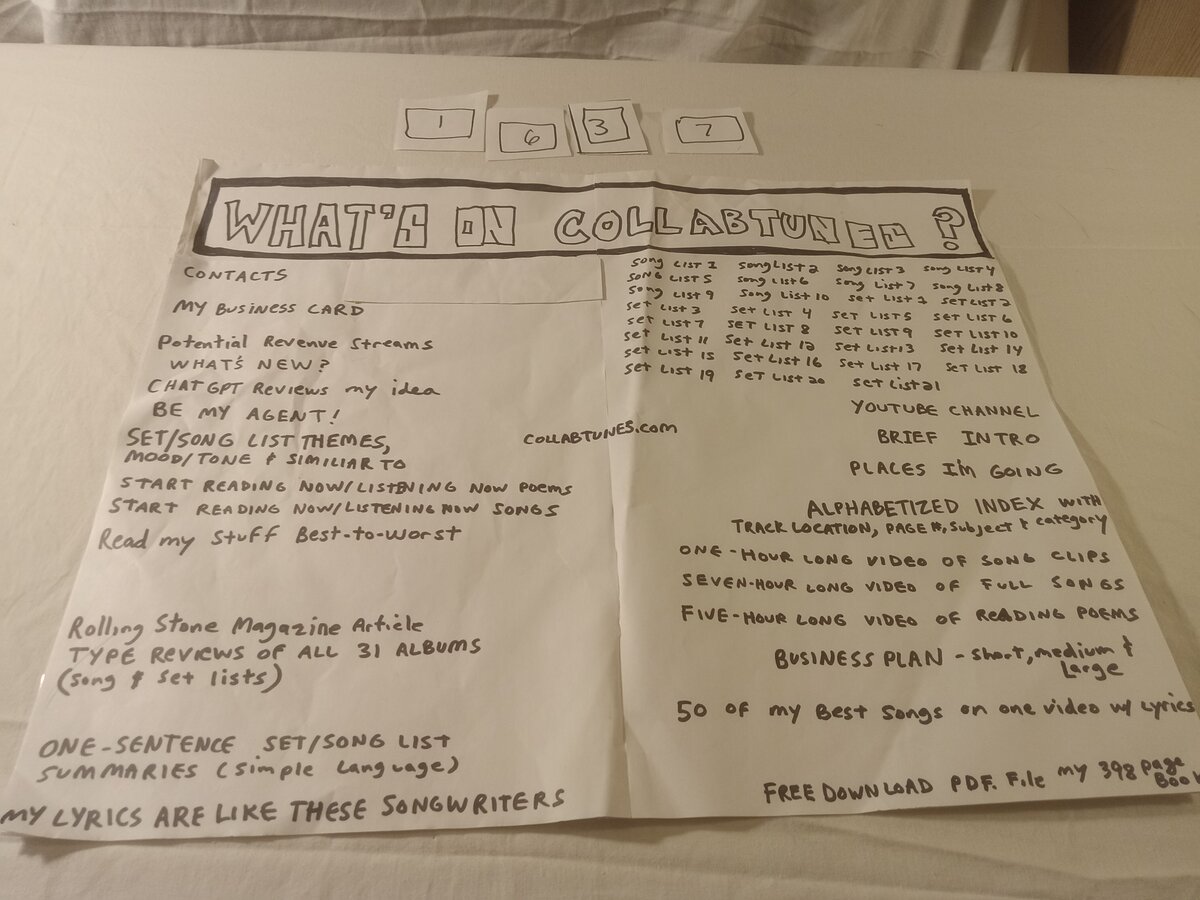 1 6 3 7
WHAT'S ON COLLABTUNES ?
CONTACTS
MY BUSINESS CARD
Potential Revenue Streams
WHAT'S NEW?
CHATGPT Reviews my idea
BE MY AGENT!
SET/SONG LIST THEMES,
MOOD/TONE & SIMILIAR TO
START READING NOW/LISTENING NOW Poems
START READING NOW/LISTENING NOW SONGS
Read my Stuff Best-to-Worst
Rolling Stone Magazine Article
TYPE REVIEWS OF ALL 31 ALBUMS
(Song & Set lists)
ONE-SENTENCE SET/SONG LIST
SUMMARIES (Simple Language)
MY LYRICS ARE LIKE THESE SONGWRITERS
COLLABTUNES.com
Song LIST 1 Song LIST 2 Song LIST 3 Song LIST 4
SONG LIST 5 Song LIST 6 Song LIST 7 Song LIST 8
Song LIST 9 Song List 10 Set LIST 1 SET LIST 2
Set LIST 3 Set LIST 4 SET LIST 5 Set LIST 6
Set LIST 7 SET LIST 8 Set LIST 9 SET LIST 10
Set LIST 11 Set LIST 12 Set LIST 13 Set LIST 14
Set LIST 15 Set LIST 16 Set LIST 17 Set LIST 18
Set LIST 19 SET LIST 20 Set List 21
YOUTUBE CHANNEL
BRIEF INTRO
PLACES I'M GOING
ALPHABETIZED INDEX WITH
TRACK LOCATION, PAGE #, Subject & category
ONE-HOUR LONG VIDEO OF SONG CLIPS
SEVEN-HOUR LONG VIDEO OF FULL SONGS
FIVE-HOUR LONG VIDEO OF READING POEMS
BUSINESS PLAN - Short, medium &
Large
50 OF my Best Songs on one video w/ Lyrics
FREE DOWNLOAD PDF. File my 398 page
Book